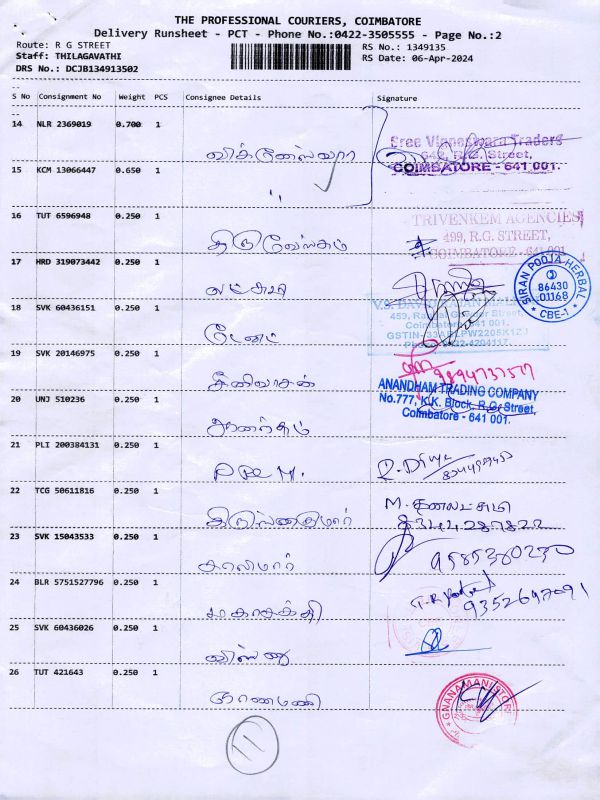 THE PROFESSIONAL COURIERS, COIMBATORE
Delivery Runsheet - PCT - Phone No.:0422-3505555 - Page No.:2
Route: R G STREET
RS No.: 1349135
Staff: THILAGAVATHI
RS Date: 06-Apr-2024
DRS No.: DCJB134913502
S No Consignment No Weight PCS Consignee Details Signature
14 NLR 2369019 0.700 1
Sree Vigneshwara Traders
642, R.G. Street,
COIMBATORE - 641 001.
15 KCM 13066447 0.650 1
,,
16 TUT 6596948 0.250 1
TRIVENKEM AGENCIES
499, R.G. STREET,
COIMBATORE - 641 001
17 HRD 319073442 0.250 1
SIRAN POOJA HERBAL
86430
01168
* CBE-1 *
18 SVK 60436151 0.250 1
Coimbatore - 641 001.
19 SVK 20146975 0.250 1
சீனிவாசன்
ANANDHAM TRADING COMPANY
No.777, K.K. Block, R.G. Street,
Coimbatore - 641 001.
20 UNJ 510236 0.250 1
ஆனந்தம்
21 PLI 200384131 0.250 1
R. Divya
22 TCG 50611816 0.250 1
M. தனலட்சுமி
8344287822
23 SVK 15043533 0.250 1
9585380230
24 BLR 5751527796 0.250 1
மகாசக்தி
9352697091
25 SVK 60436026 0.250 1
விஸ்ணு
26 TUT 421643 0.250 1
ஞானமணி
GNANAMANI STOR
11